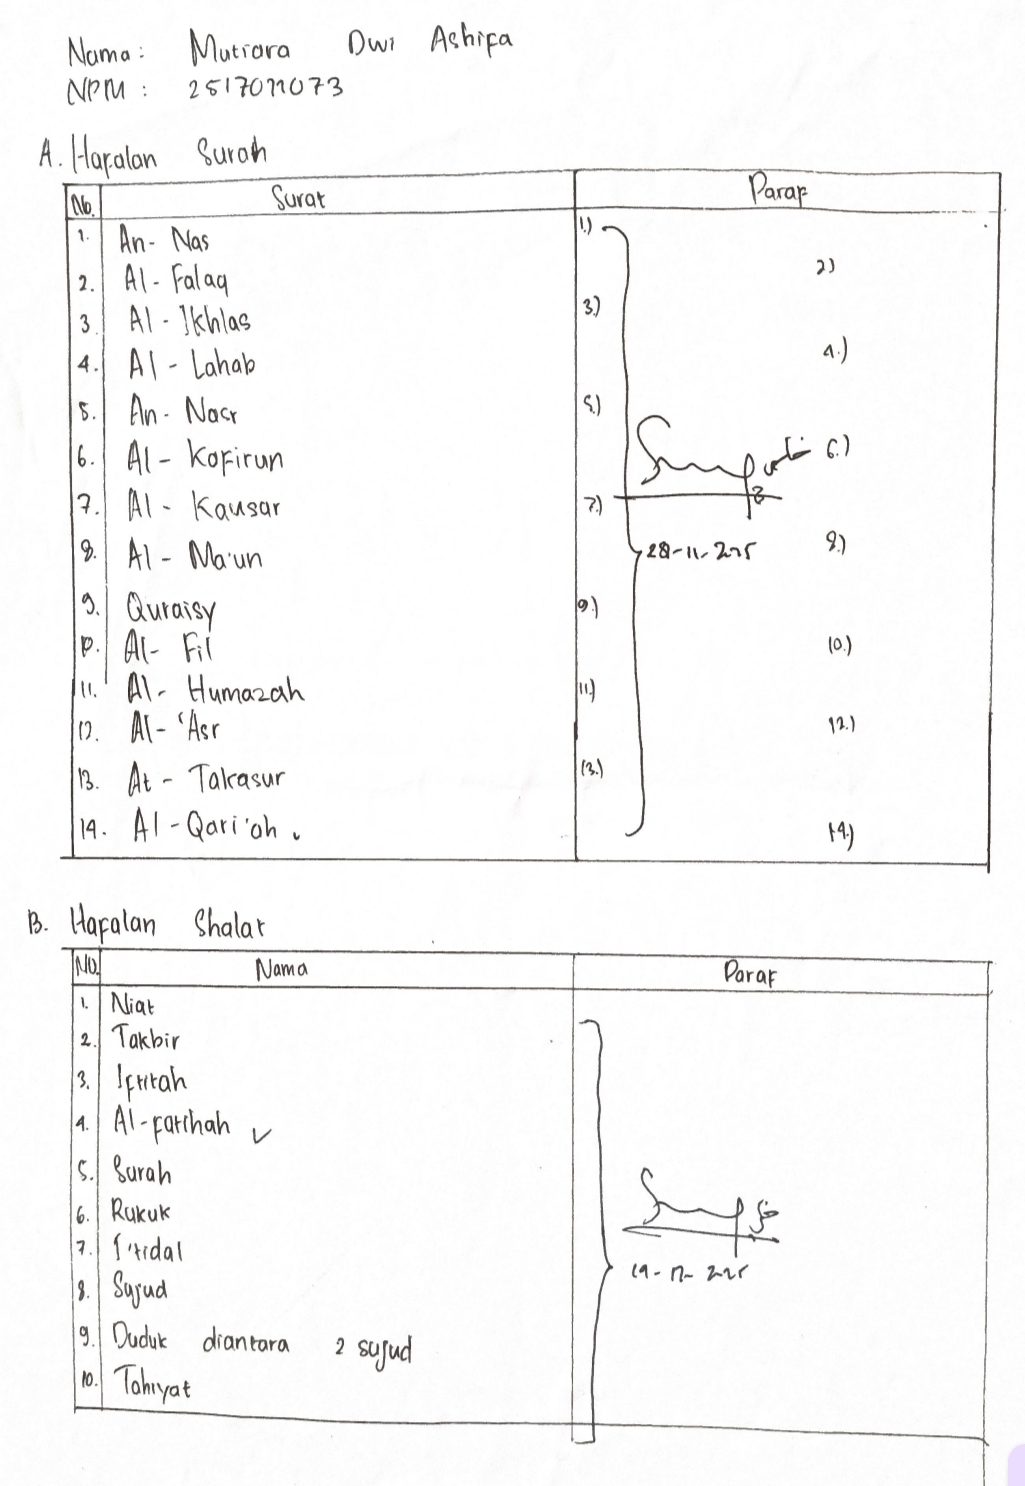 Nama : Mutiara Dwi Ashifa
NPM : 2517011073
A. Hafalan Surah
No. Surat Paraf
1. An- Nas 1.)
2. Al- Falaq 2)
3. Al - Ikhlas 3.)
4. Al - Lahab 4.)
5. An - Nasr 5.)
6. Al - Kafirun 6.)
7. Al - Kausar 7.)
8. Al - Ma'un 8.)
28-11-2025
9. Quraisy 9.)
10. Al- Fil 10.)
11. Al- Humazah 11.)
12. Al- 'Asr 12.)
13. At - Takasur 13.)
14. Al - Qari'ah 14.)
B. Hafalan Shalat
No. Nama Paraf
1. Niat
2. Takbir
3. Iftitah
4. Al-fatihah
5. Surah
6. Rukuk
7. I'tidal
8. Sujud
9. Duduk diantara 2 sujud
10. Tahiyat